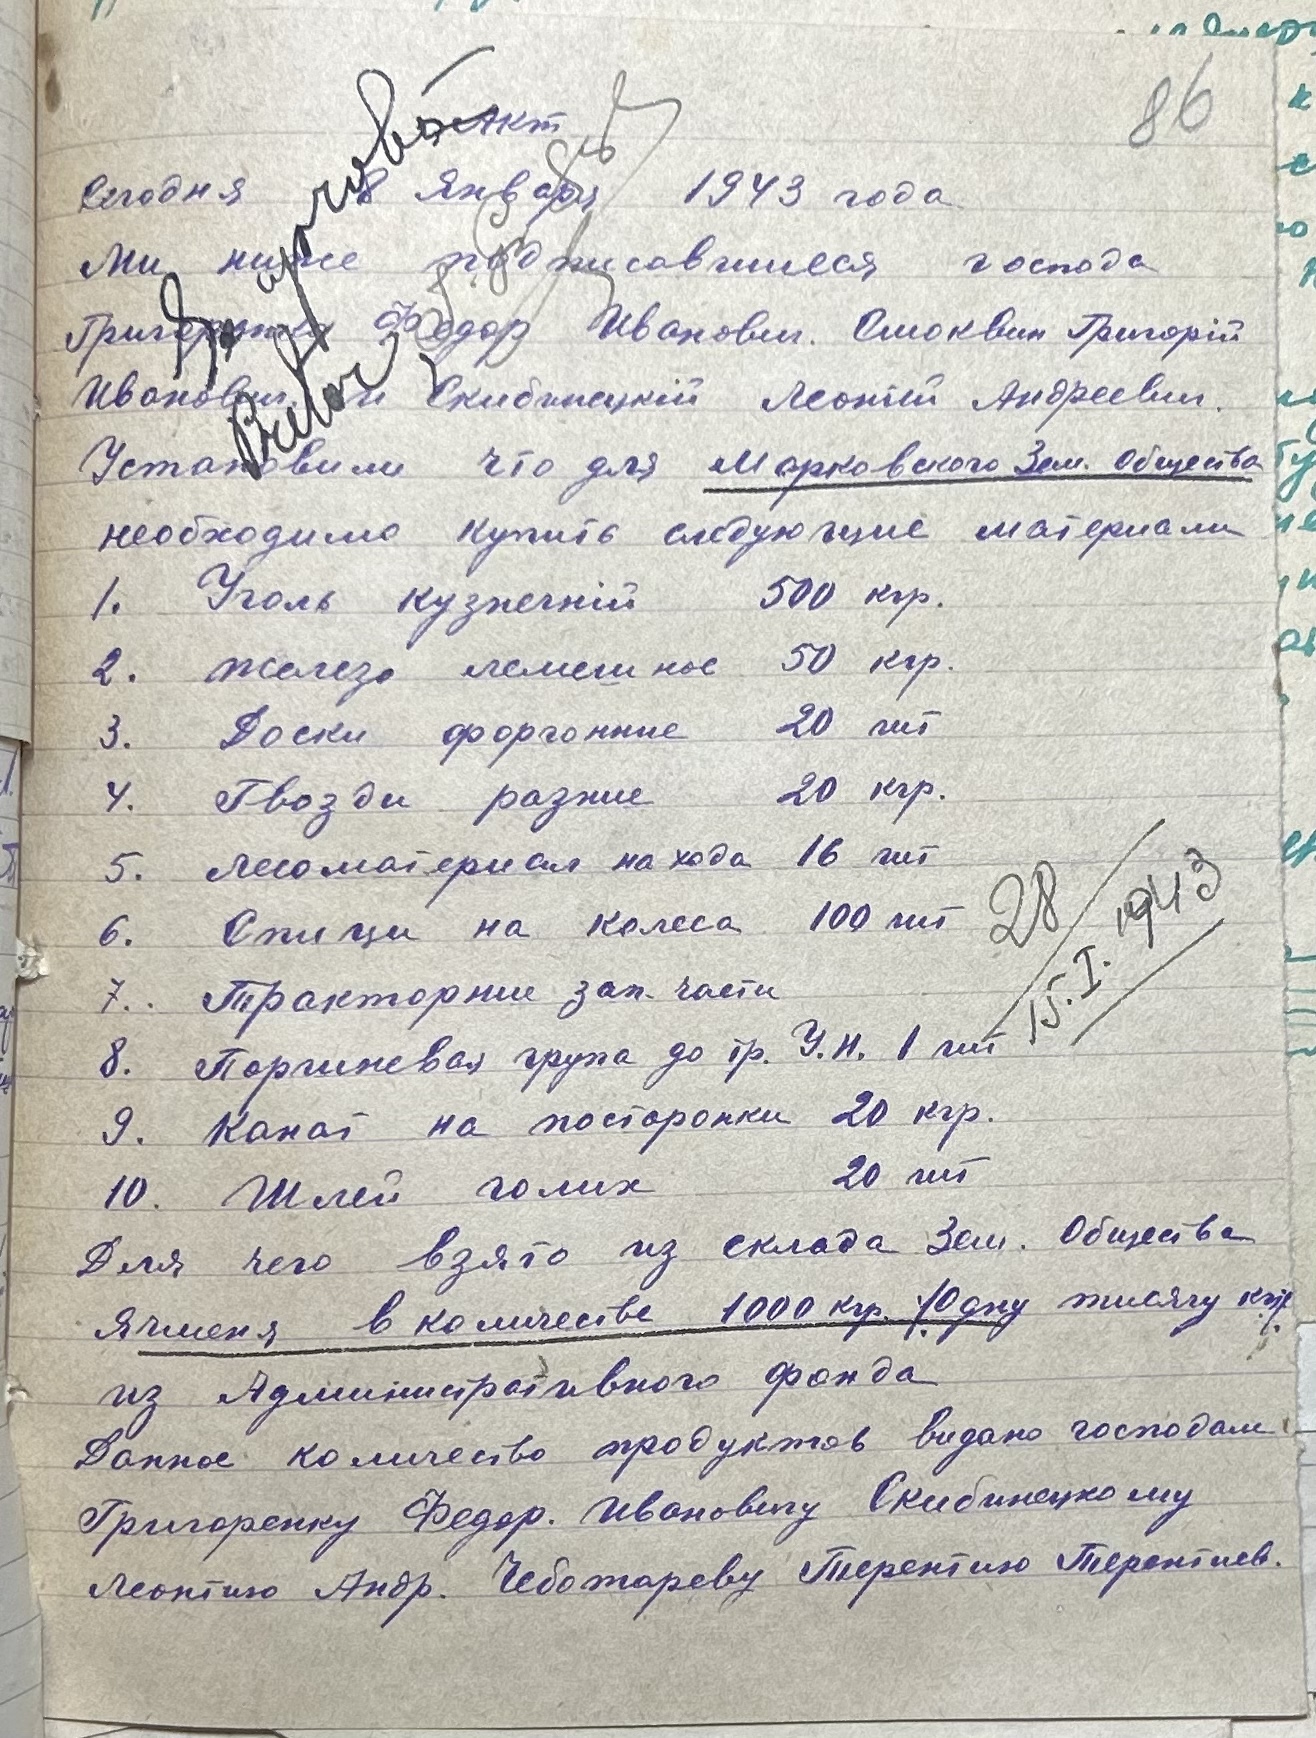 86
Акт
Сегодня 8 Января 1943 года
Ми ниже подписавшиеся господа
Григоренко Федор Иванович. Смоквин Григорій
Иванович. и Скибинецкій Леонтій Андреевич.
Установили что для Марковского Зем. Общества
необходимо купить следующие материали
1. Уголь кузнечній 500 кгр.
2. Железо лемешное 50 кгр.
3. Доски форгонние 20 шт
4. Гвозди разние 20 кгр.
5. Лесоматериал на хода 16 шт
6. Спици на колеса 100 шт
7. Тракторние зап. части
8. Поршневая група до тр. У.Н. 1 шт
9. Канат на посторонки 20 кгр.
10. Шлей голих 20 шт
28
15.I.1943
Для чего взято из склада Зем. Общества
Ячменя в количестве 1000 кгр. /Одну тисячу кгр/.
из Административного фонда
Данное количество продуктов видано господам
Григоренку Федор. Ивановичу Скибинецкому
Леонтию Андр. Чеботареву Терентию Терентиев.